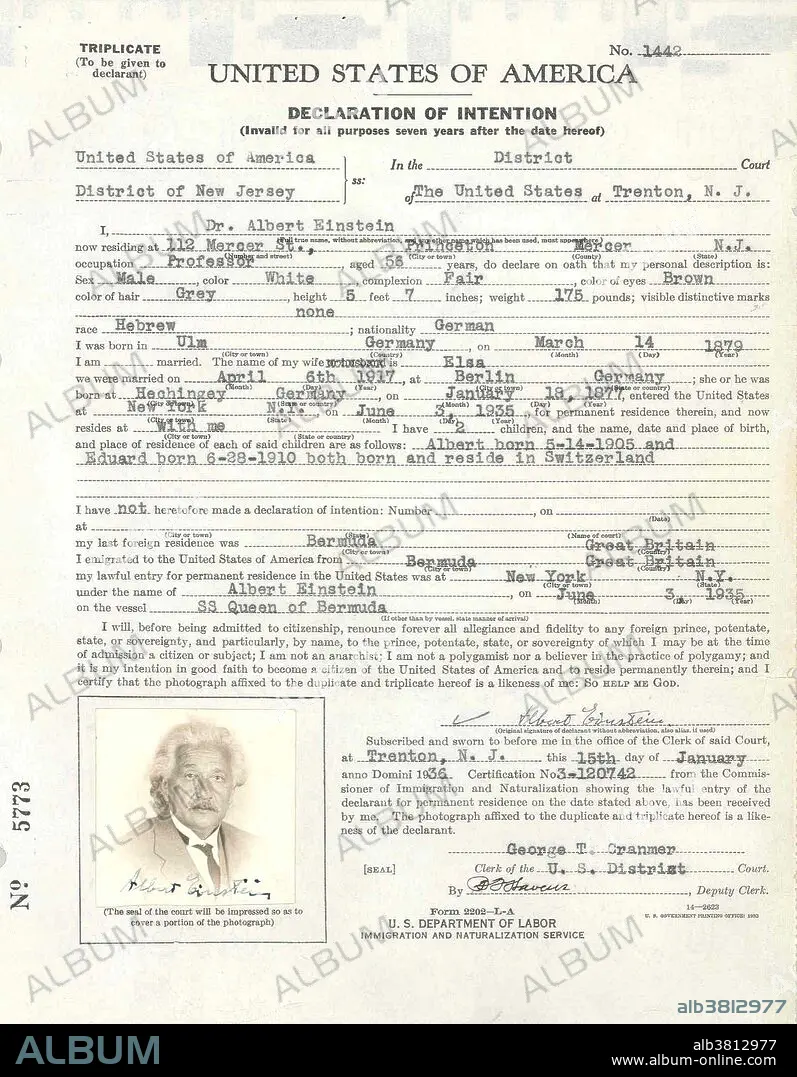 TRIPLICATE
(To be given to
declarant)
No. 1442
UNITED STATES OF AMERICA
DECLARATION OF INTENTION
(Invalid for all purposes seven years after the date hereof)
United States of America
District of New Jersey
ss:
In the District Court
of The United States at Trenton, N. J.
I, Dr. Albert Einstein
(Full true name, without abbreviation, and any other name which has been used, must appear here)
now residing at 112 Mercer St., Princeton Mercer N.J.
(Number and street) (City or town) (County) (State)
occupation Professor, aged 56 years, do declare on oath that my personal description is:
Sex Male, color White, complexion Fair, color of eyes Brown
color of hair Grey, height 5 feet 7 inches; weight 175 pounds; visible distinctive marks
none
race Hebrew; nationality German
I was born in Ulm Germany, on March 14 1879
(City or town) (Country) (Month) (Day) (Year)
I am married. The name of my wife or husband is Elsa
we were married on April 6th 1917, at Berlin Germany; she or he was
(Month) (Day) (Year) (City or town) (State or country)
born at Hechingey Germany, on January 18, 1877, entered the United States
(City or town) (State or country) (Month) (Day) (Year)
at New York N.Y. on June 3, 1935 for permanent residence therein, and now
(City or town) (State) (Month) (Day) (Year)
resides at With me I have 2 children, and the name, date and place of birth,
(City or town) (State or country)
and place of residence of each of said children are as follows: Albert born 5-14-1905 and
Eduard born 6-28-1910 both born and reside in Switzerland
I have not heretofore made a declaration of intention: Number, on
(Date)
at
(City or town) (State) (Name of court)
my last foreign residence was Bermuda Great Britain
(City or town) (Country)
I emigrated to the United States of America from Bermuda Great Britain
(City or town) (Country)
my lawful entry for permanent residence in the United States was at New York N.Y.
(City or town) (State)
under the name of Albert Einstein, on June 3, 1935
(Month) (Day) (Year)
on the vessel SS Queen of Bermuda
(If other than by vessel, state manner of arrival)
I will, before being admitted to citizenship, renounce forever all allegiance and fidelity to any foreign prince, potentate,
state, or sovereignty, and particularly, by name, to the prince, potentate, state, or sovereignty of which I may be at the time
of admission a citizen or subject; I am not an anarchist; I am not a polygamist nor a believer in the practice of polygamy; and
it is my intention in good faith to become a citizen of the United States of America and to reside permanently therein; and I
certify that the photograph affixed to the duplicate and triplicate hereof is a likeness of me: SO HELP ME GOD.
Albert Einstein
(Original signature of declarant without abbreviation, also alias, if used)
Subscribed and sworn to before me in the office of the Clerk of said Court,
at Trenton, N. J. this 15th day of January
anno Domini 1936. Certification No 3-120742 from the Commis-
sioner of Immigration and Naturalization showing the lawful entry of the
declarant for permanent residence on the date stated above, has been received
by me. The photograph affixed to the duplicate and triplicate hereof is a like-
ness of the declarant.
George T. Cranmer
[SEAL] Clerk of the U. S. District Court.
By, Deputy Clerk.
Form 2202-L-A
14-2623
U. S. GOVERNMENT PRINTING OFFICE:
U. S. DEPARTMENT OF LABOR
IMMIGRATION AND NATURALIZATION SERVICE
No 5773
Albert Einstein
(The seal of the court will be impressed so as to
cover a portion of the photograph)
ALBUM
alb3812977
ALBUM
alb3812977
www.album-online.com